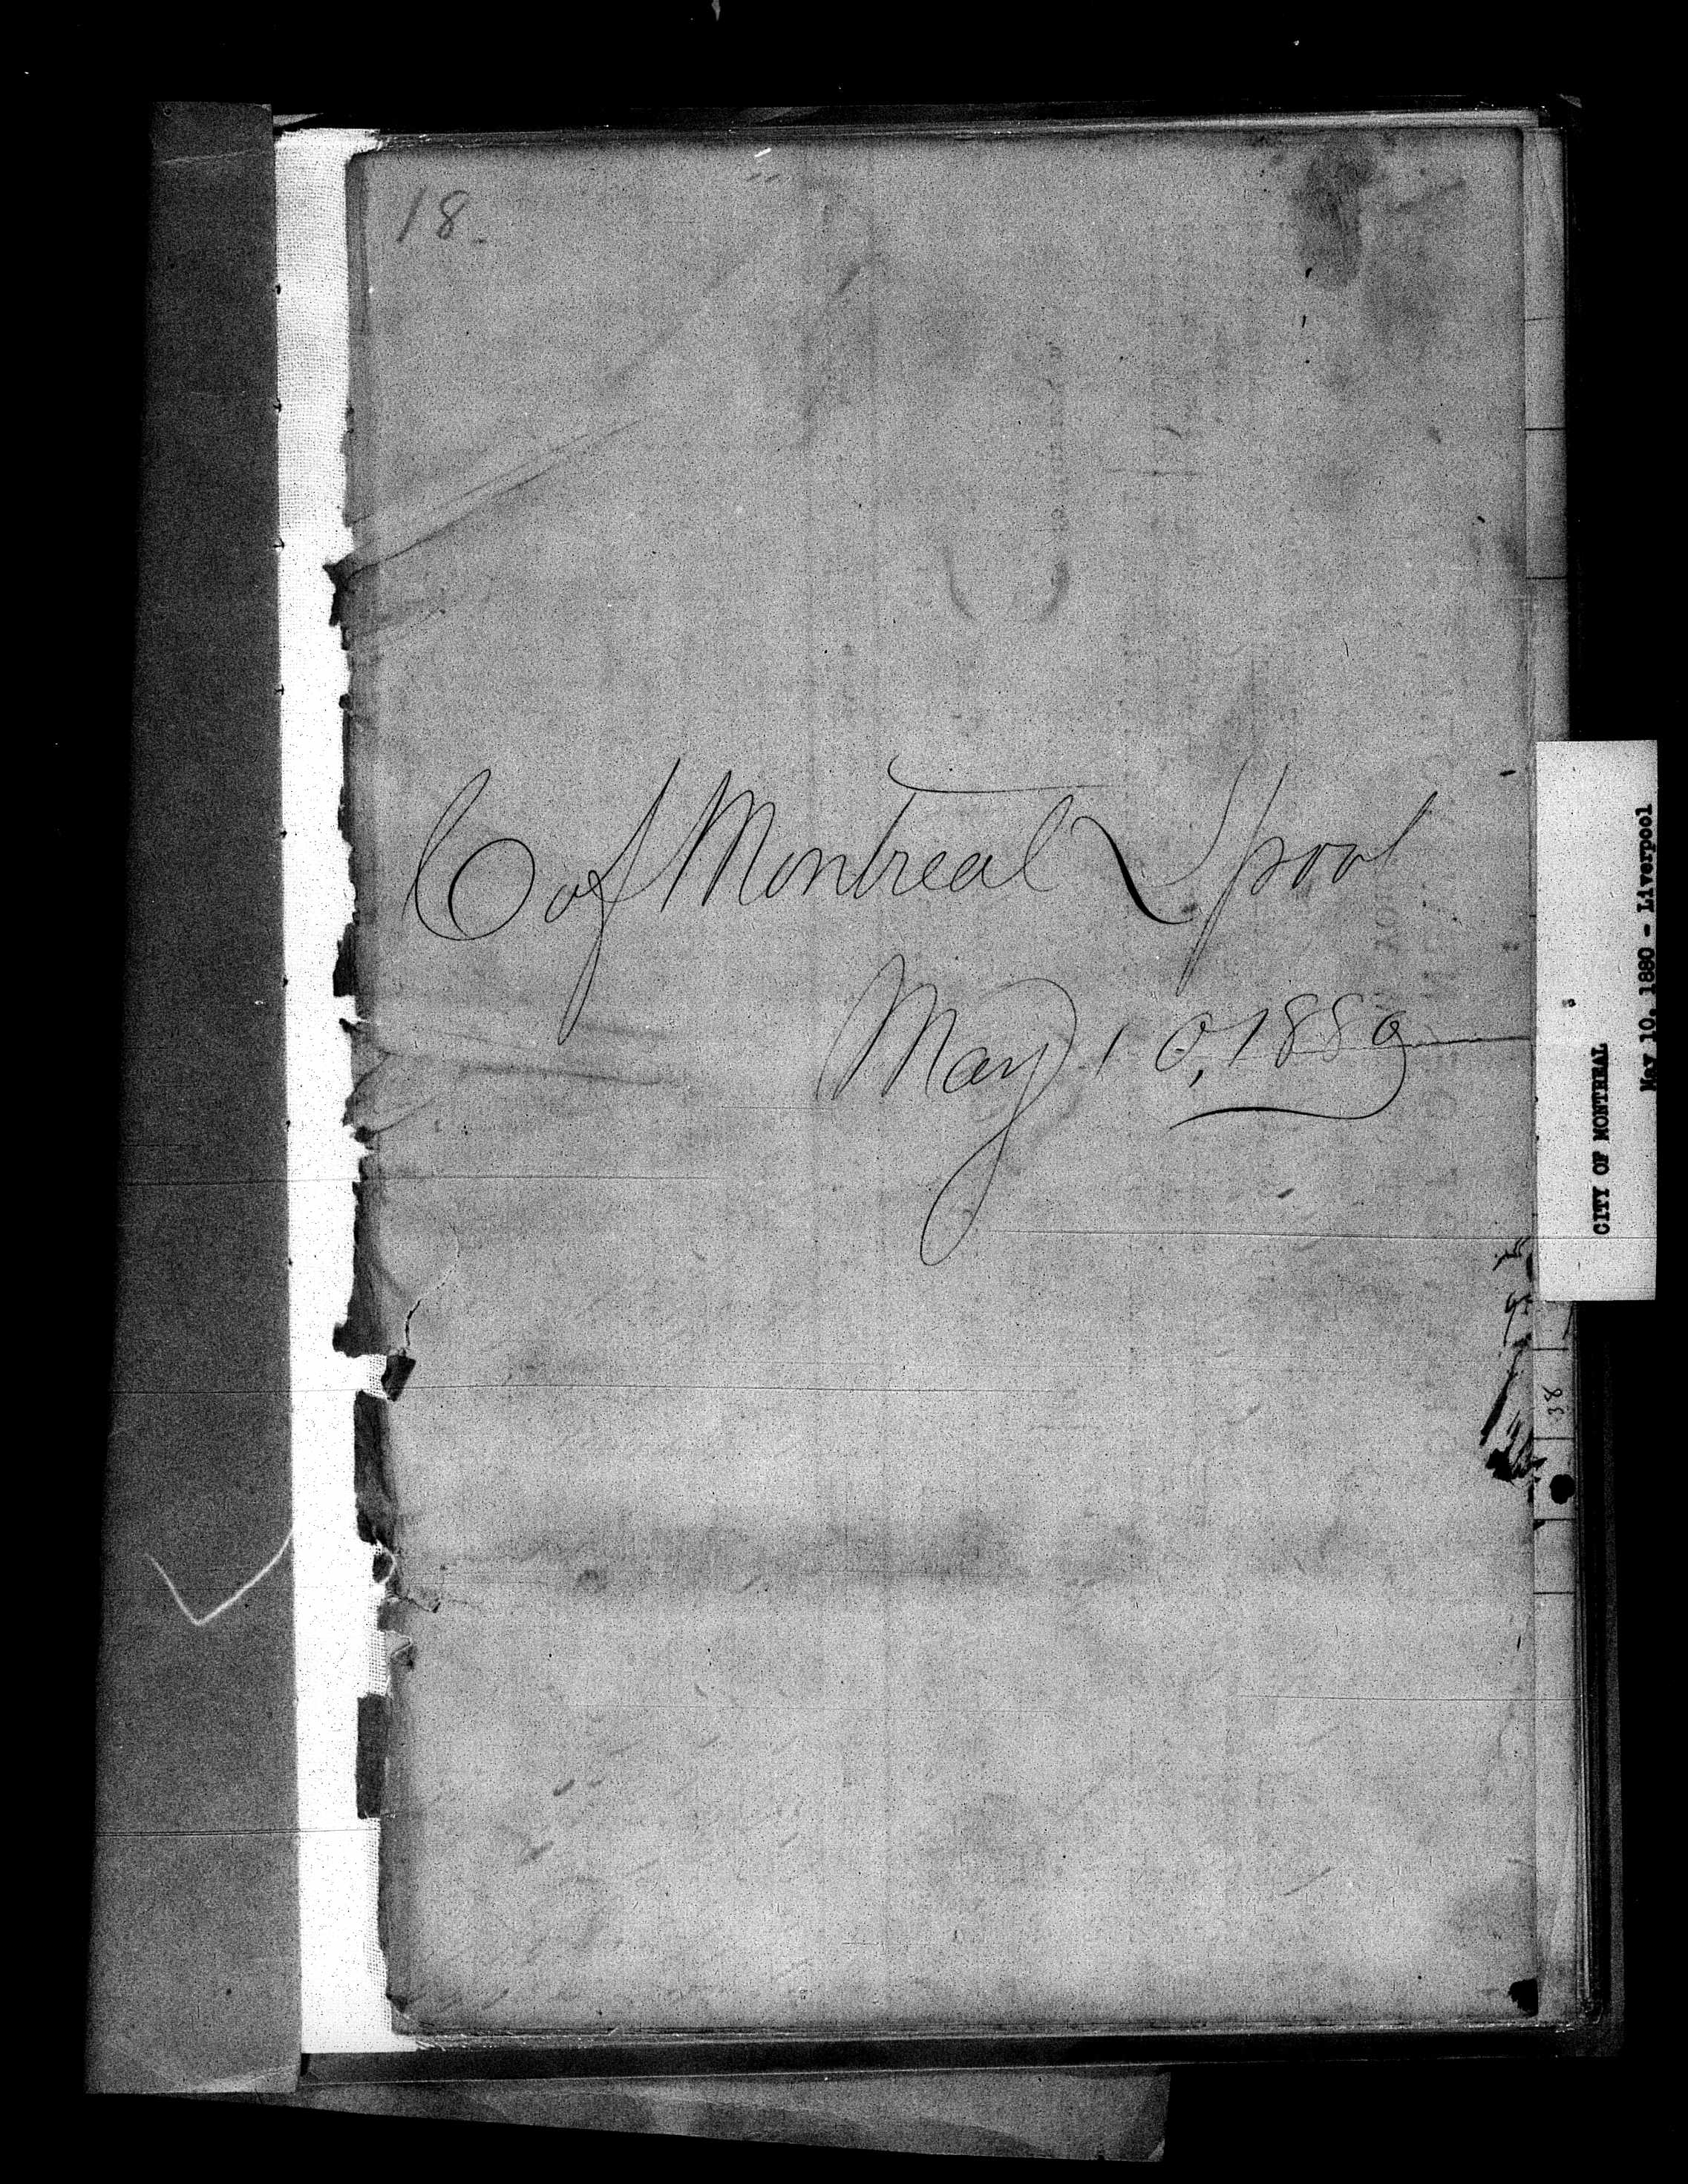 18.
C of Montreal L'pool
May 10, 1880
CITY OF MONTREAL
May 10, 1880 - Liverpool
38